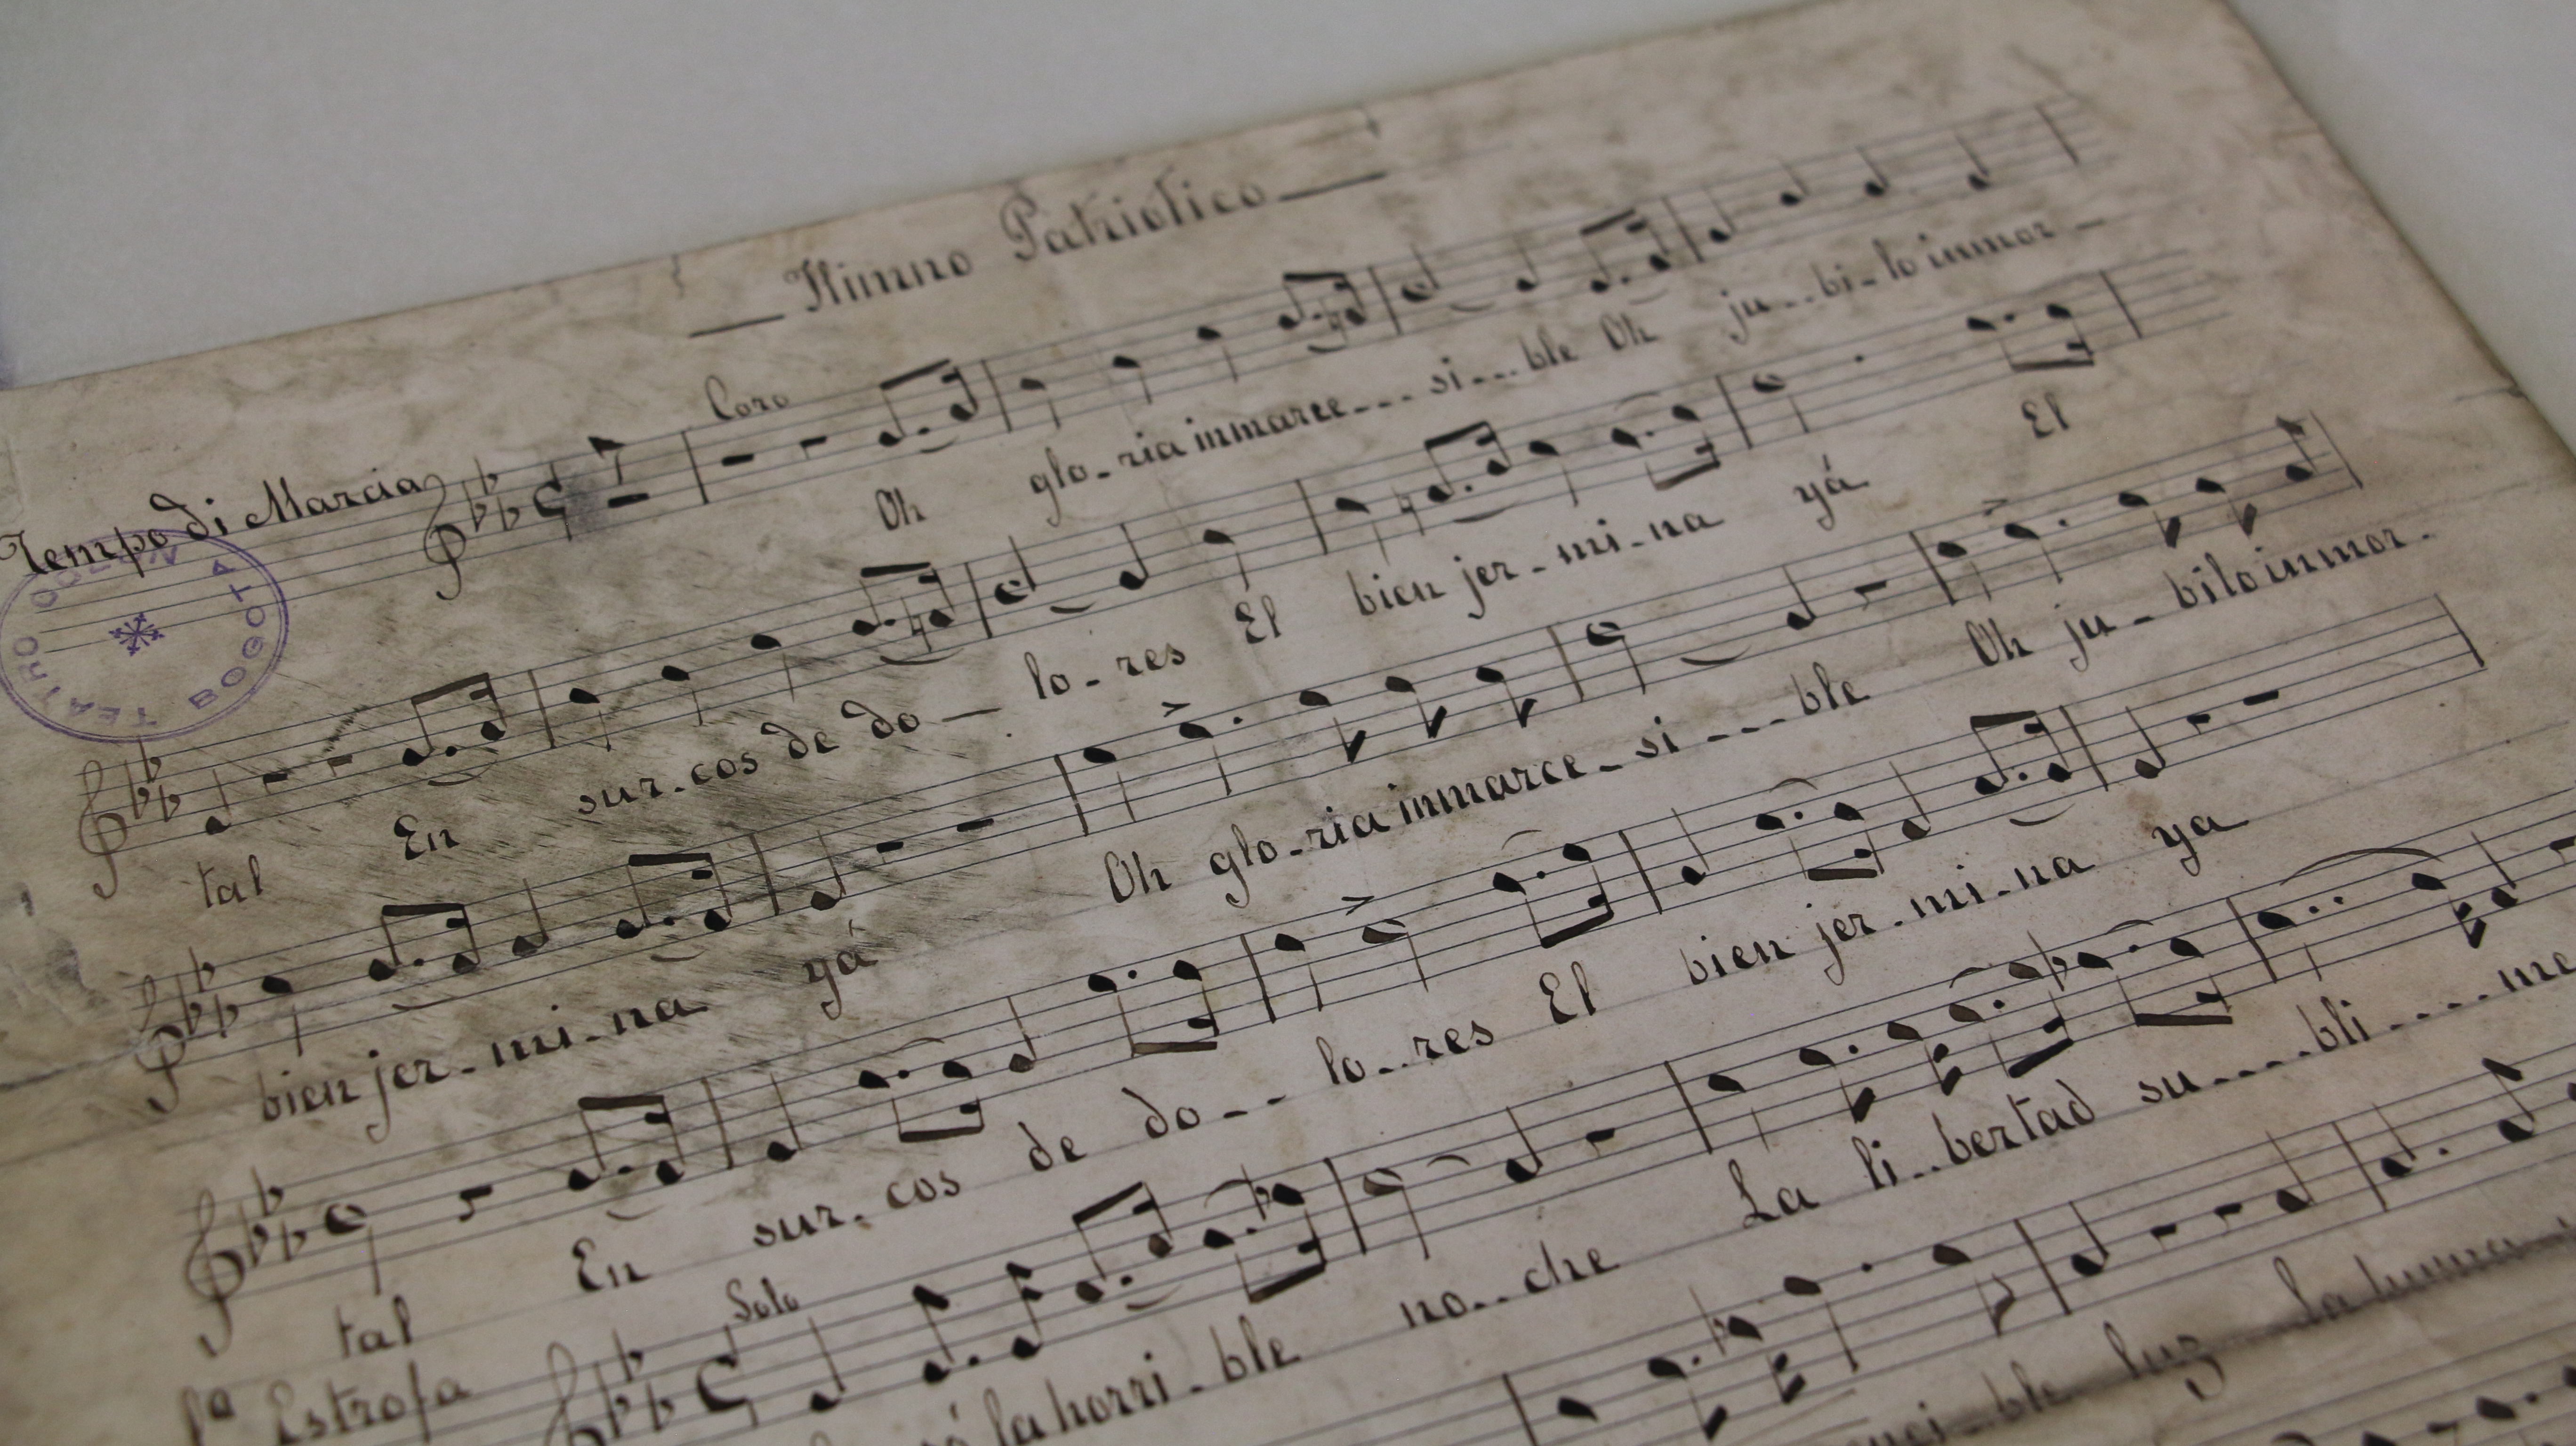 Himno Patriotico
Coro
Tempo di Marcia
7
TEATRO COLON BOGOTA
Oh glo-ria inmarce---si---ble Oh ju--bi-lo inmor-
tal En sur-cos de do- lo-res El bien jer-mi-na yá El
bien jer-mi-na yá Oh glo-ria inmarce-si---ble Oh ju-bilo inmor-
tal En sur-cos de do-- lo--res El bien jer-mi-na ya
1ª Estrofa
Solo
la horri-ble no--che La li--bertad su---bli----me
ble luz la huma